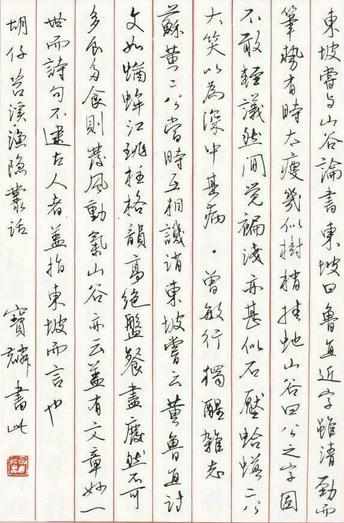 東坡嘗與山谷論書東坡曰魯直近字雖清勁而
筆勢有時太瘦幾似樹梢挂蛇山谷曰公之字固
不敢輕議然間覺褊淺亦甚似石壓蛤蟆二公
大笑以為深中其病·曾敏行獨醒雜志
蘇黃二公當時互相譏誚東坡嘗云黃魯直詩
文如蝤蛑江珧柱格韻高絕盤餐盡廢然不可
多食多食則發風動氣山谷亦云蓋有文章妙一
世而詩句不逮古人者蓋指東坡而言也
胡仔苕溪漁隱叢話
寶麟書此